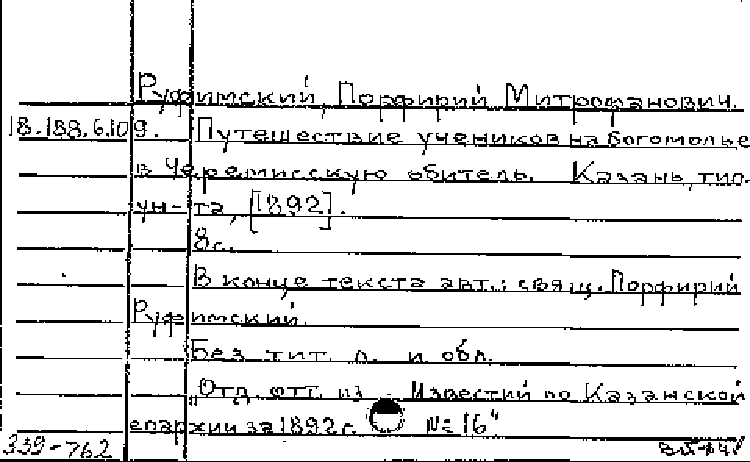 Руфимский, Порфирий Митрофанович.
18.188.6.109. Путешествие учеников на богомолье
в Черемисскую обитель. Казань, тип.
ун-та, [1892].
8 с.
В конце текста авт.: свящ. Порфирий
Руфимский.
Без тит. л. и обл.
"Отд. отт. из Известий по Казанской
епархии за 1892 г. № 16"
339-762